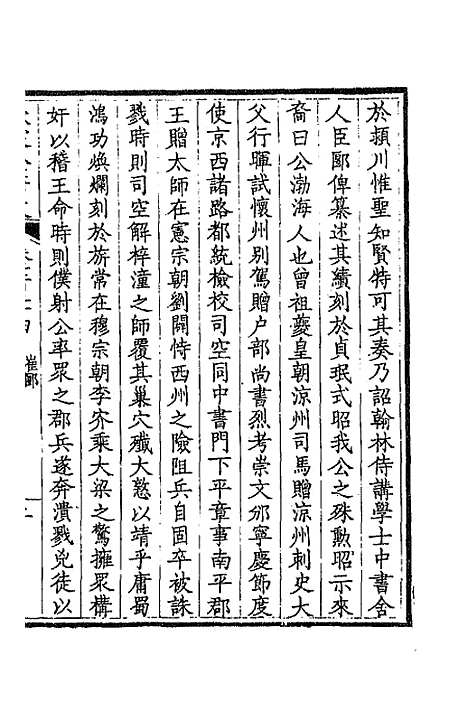 於頴川惟聖知賢特可其奏乃詔翰林侍講學士中書舍
人臣郾俾纂述其績刻於貞珉式昭我公之殊勳昭示來
裔曰公渤海人也曾祖夔皇朝涼州司馬贈涼州刺史大
父行暉試懷州别駕贈户部尚書烈考崇文邠寧慶節度
使京西諸路都統檢校司空同中書門下平章事南平郡
王贈太師在憲宗朝劉闢恃西州之險阻兵自固卒被誅
戮時則司空解梓潼之師覆其巢穴殲大憝以靖乎庸蜀
鴻功煥爛刻於旂常在穆宗朝李㝏乘大梁之驚擁眾構
奸以稽王命時則僕射公率眾之郡兵遂奔潰戮兇徒以
崔郾